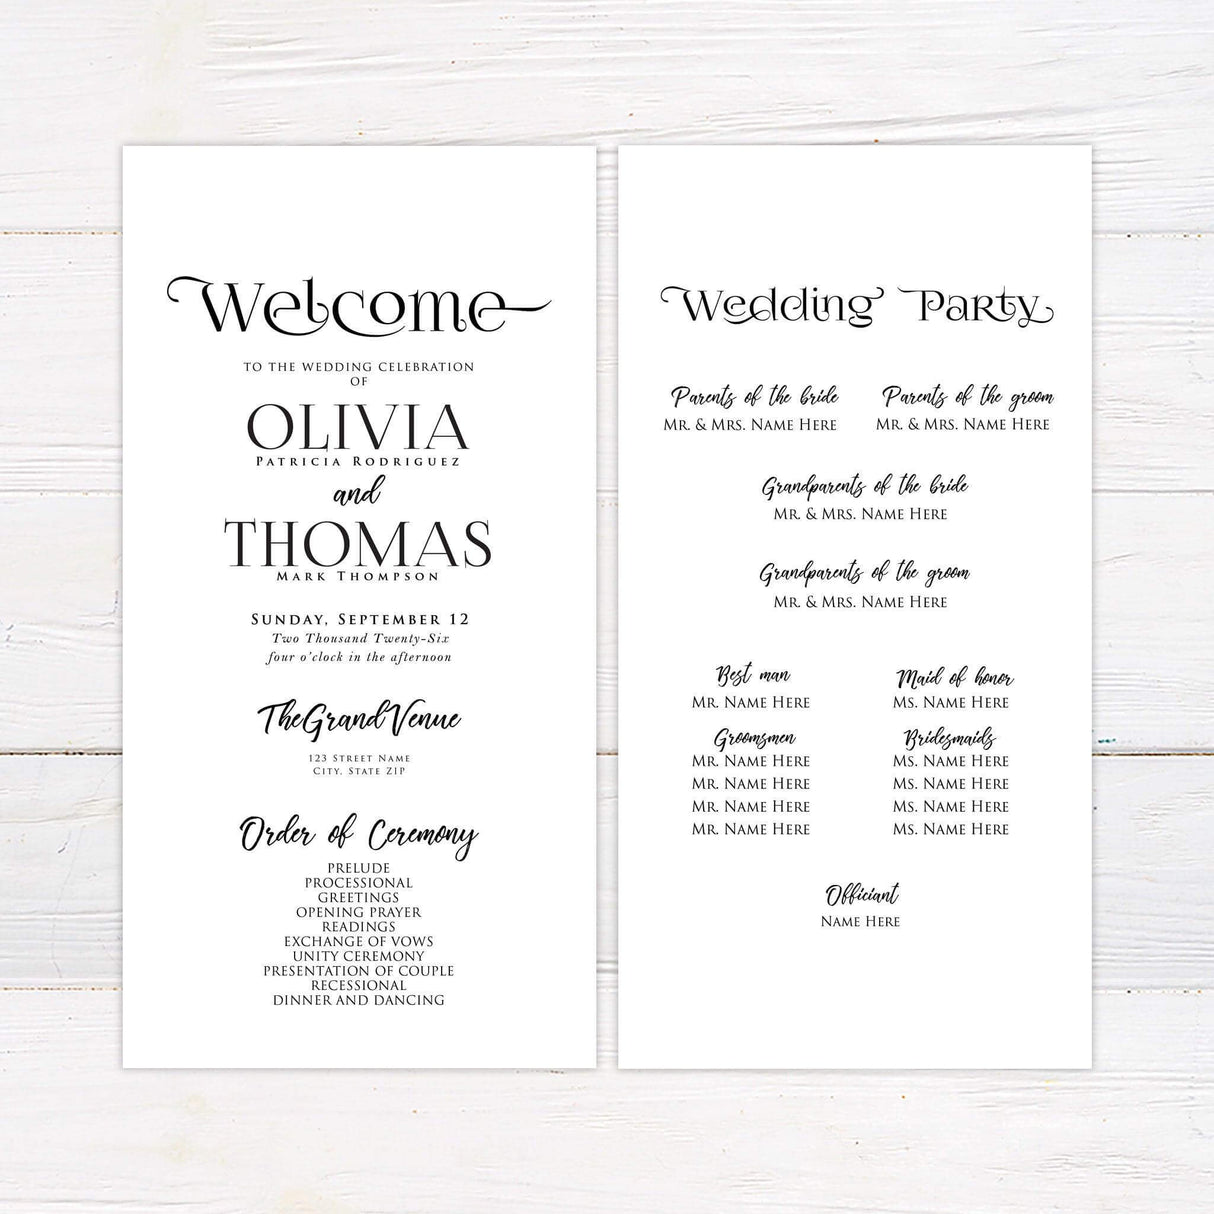 Welcome
TO THE WEDDING CELEBRATION
OF
OLIVIA
PATRICIA RODRIGUEZ
and
THOMAS
MARK THOMPSON
SUNDAY, SEPTEMBER 12
Two Thousand Twenty-Six
four o'clock in the afternoon
The Grand Venue
123 STREET NAME
CITY, STATE ZIP
Order of Ceremony
PRELUDE
PROCESSIONAL
GREETINGS
OPENING PRAYER
READINGS
EXCHANGE OF VOWS
UNITY CEREMONY
PRESENTATION OF COUPLE
RECESSIONAL
DINNER AND DANCING
Wedding Party
Parents of the bride
MR. & MRS. NAME HERE
Parents of the groom
MR. & MRS. NAME HERE
Grandparents of the bride
MR. & MRS. NAME HERE
Grandparents of the groom
MR. & MRS. NAME HERE
Best man
MR. NAME HERE
Groomsmen
MR. NAME HERE
MR. NAME HERE
MR. NAME HERE
MR. NAME HERE
Maid of honor
MS. NAME HERE
Bridesmaids
MS. NAME HERE
MS. NAME HERE
MS. NAME HERE
MS. NAME HERE
Officiant
NAME HERE